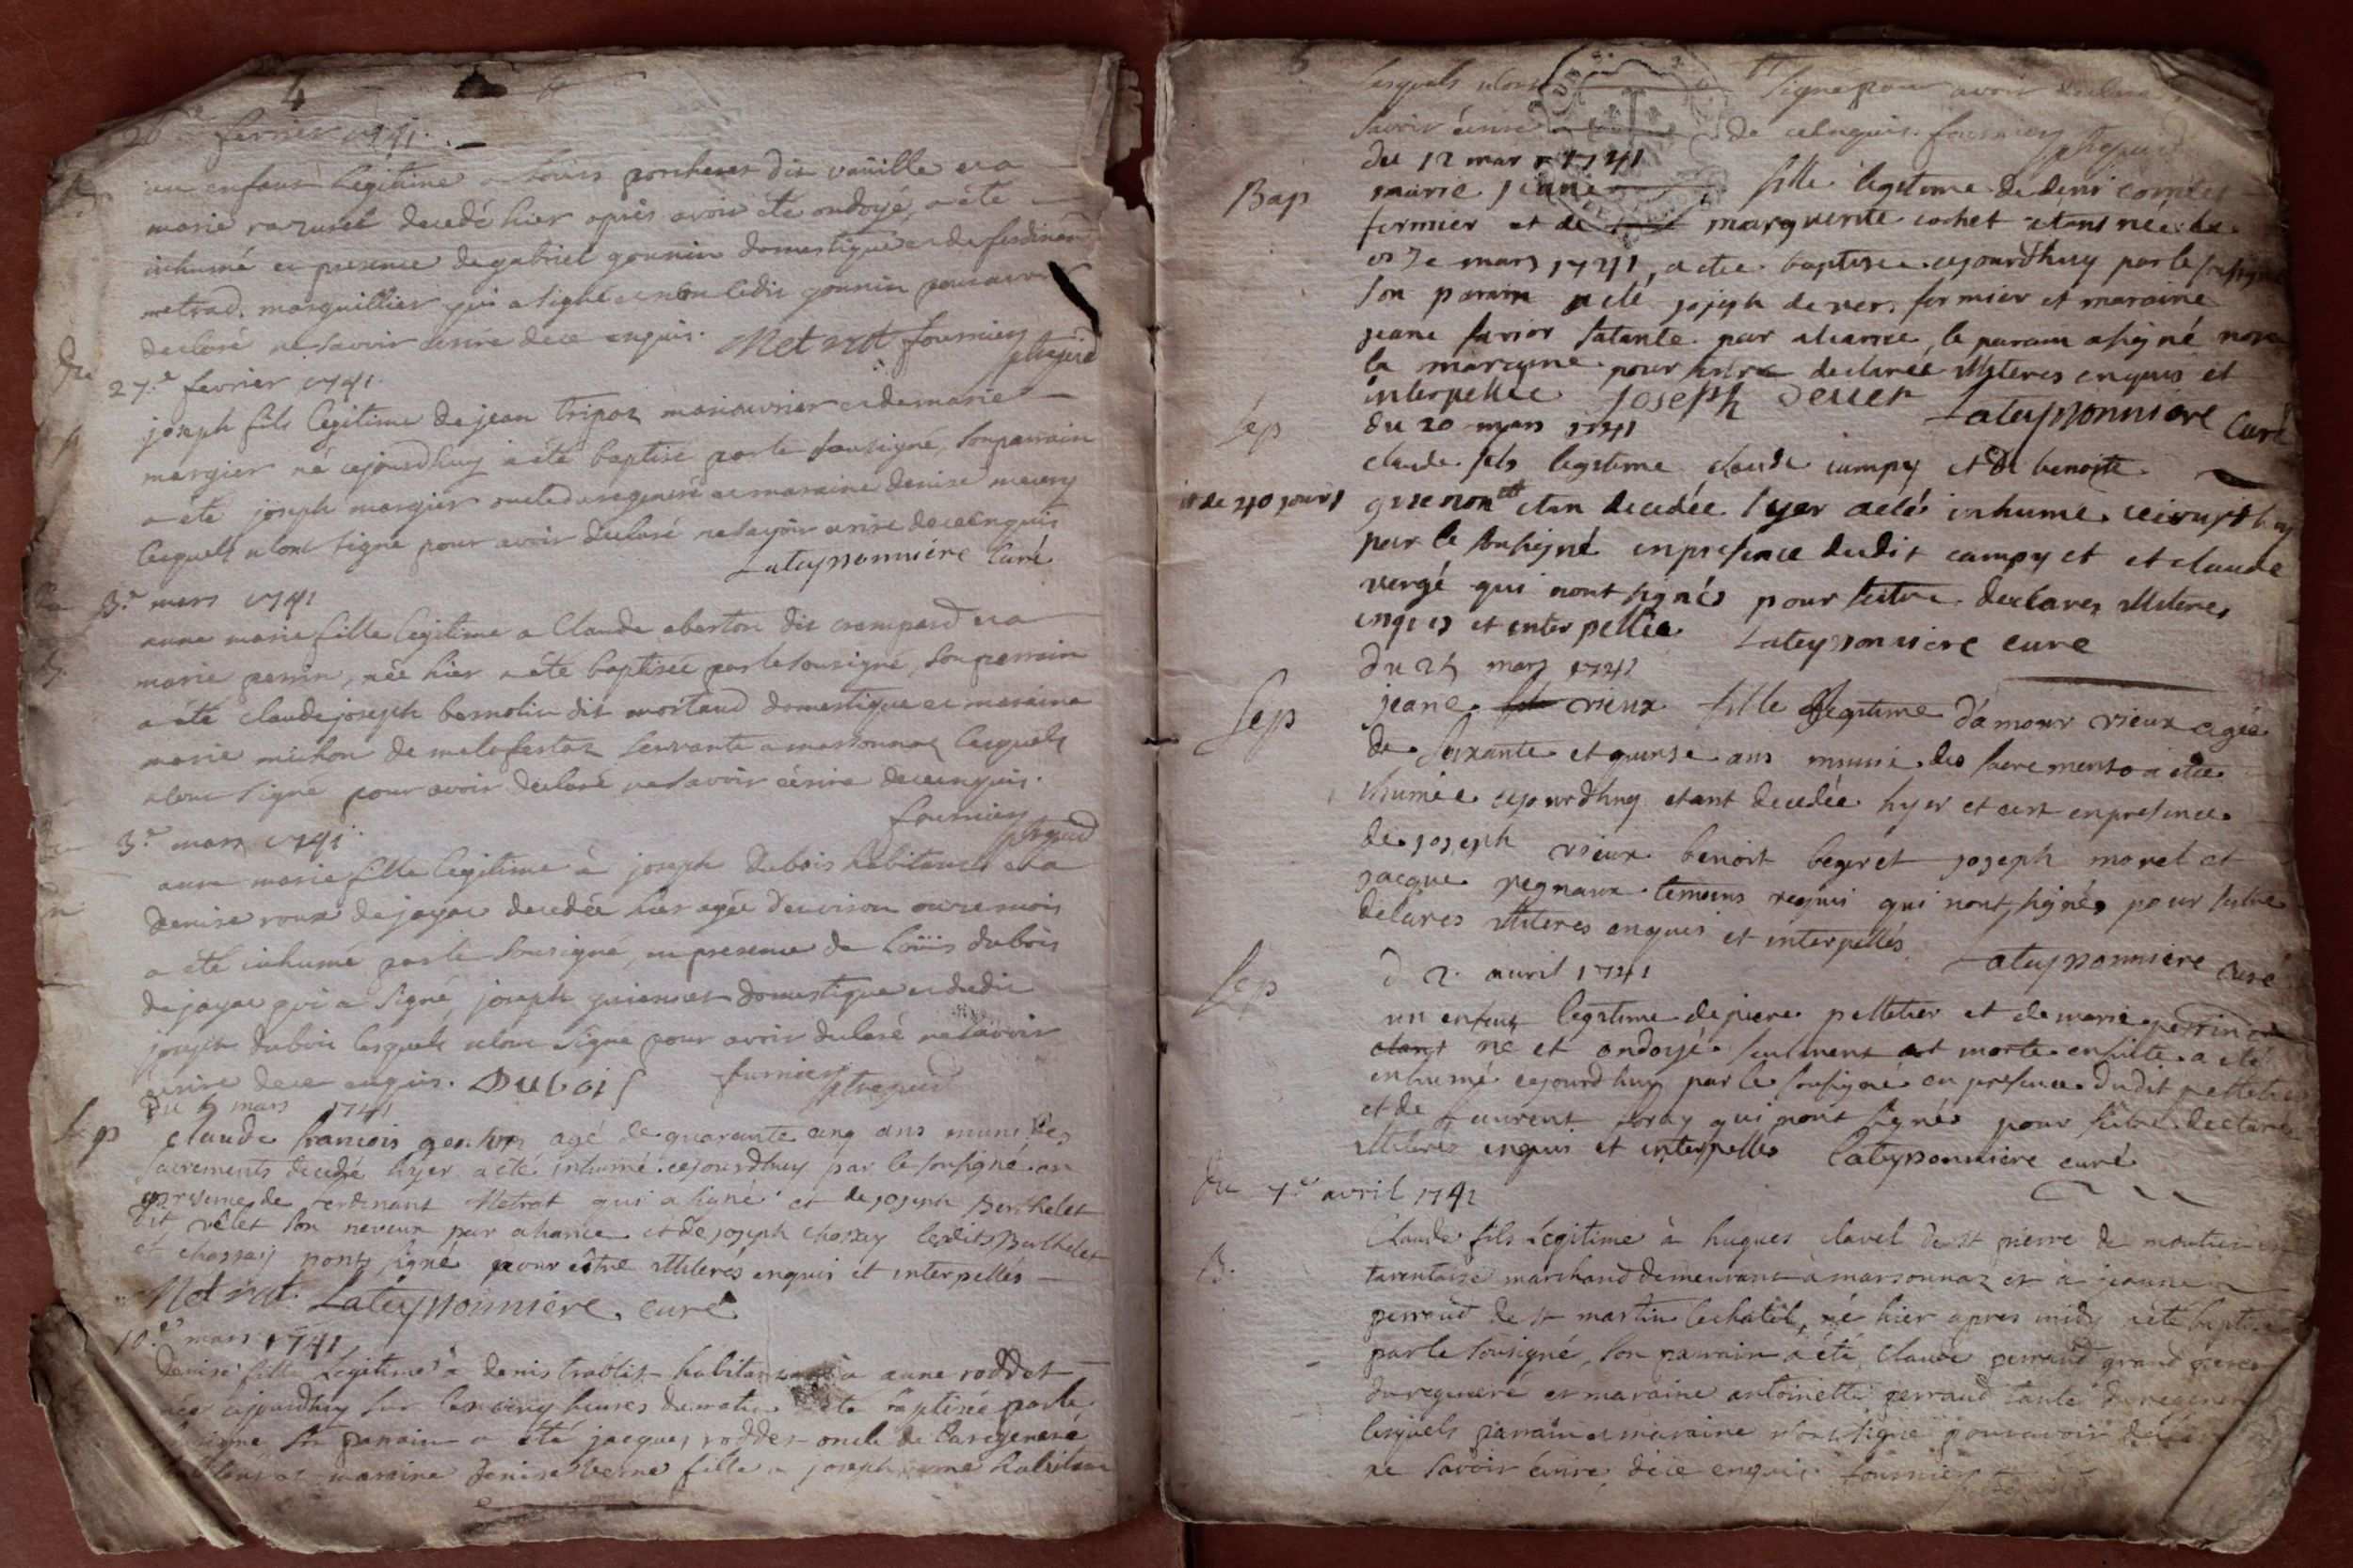 4
26.e fevrier 1741.
un enfant legitime a Loüis porcheret dit vaüille et a
marie razurel decedé hier apres avoir été ondoyé, a été
inhumé en presence de gabriel gonnin domestique et de ferdinan
metrad, marguillier qui a signé et non ledit gonnin pour avoir
declaré ne savoir ecrire de ce enquis. Metrat fournier
ptre
Du 27.e fevrier 1741.
joseph fils legitime de jean tripoz manouvrier et de marie
margier né cejourdhuy a été baptisé par le sousigné, son parrain
a été joseph margier oncle du regeneré et maraine denise
lesquels n'ont signé pour avoir declaré ne savoir ecrire de ce enquis
Lateyssonniere Curé
3.e mars 1741
anne marie fille legitime a Claude abertou dit et a
marie perrin, née hier a été baptisée par le sousigné, son parrain
a été claude joseph bernolin dit mortaud domestique et maraine
marie michon de malafretaz servante a marsonnaz lesquels
n'ont signé pour avoir declaré ne savoir écrire de ce enquis.
fournier
3.e mars 1741.
anne marie fille legitime à joseph dubois habitant et a
denise roux de jayac decedée hier agée d'environ onze mois
a été inhumé par le sousigné, en presence de Loüis dubois
de jayac qui a signé, joseph domestique et dudit
joseph dubois lesquels n'ont signé pour avoir declaré ne savoir
ecrire de ce enquis. DUboiS fournier
Du 6 mars 1741
Sep claude francois agé de quarante cinq ans muni des
sacrements decedé hyer a été inhumé cejourdhuy par le soussigné en
presence de ferdinant Metrat qui a signé et de joseph Berthelet
dit son neveux par aliance et de joseph chossay lesdits Berthelet
et chossay n'ont signé pour être illiteres enquis et interpelles
Metrat. Lateyssonniere, curé
10.e mars 1741
Denise fille Legitime a denis trablit habitan et a anne roddet
née cejourdhuy sur les cinq heures du matin a été baptisée par le
sousigné, son parrain a été jacques roddet oncle de la regenerée
et marraine Denise verne fille a joseph verne habitant
5
lesquels n'ont signé pour avoir declaré
savoir écrire de ce enquis. fournier
du 12 mars 1741
Bap marie jeane fille legitime de denis
fermier et de marguerite cochet etant née le
mars 1741, a etee baptisée cejourdhuy par le soussigné
son parain a eté joseph de vers fermier et maraine
jeane favior sa tante par aliance, le parain a signé non
la maraine pour s'estre declarée illiteres enquis et
interpellee Joseph Dever Lateyssonniere Curé
Sep du 20 mars 1741
claude fils legitime claude campy et de benoite
age de 40 jours etan decedée hyer a eté inhumé cejourdhuy
par le soussigné en presence dudit campy et et claude
vergé qui n'ont signés pour s'estre declares illiteres
enquis et interpelles Lateyssonniere curé
Du 25 mars 1741
Sep jeane vieux fille legitime d'amour vieux agée
de soixante et quinse ans munie des sacrements a etee
inhumée cejourdhuy etant decedée hyer et ce en presence
de joseph vieux benoit begret joseph morel et
jacque pegnaux temoins requis qui n'ont signés pour s'etre
declares illiteres enquis et interpellés Lateyssonniere Curé
Sep d 2. auril 1741
un enfant legitime de piere pelletier et de marie perrin
ne et ondoyé seulment et morte ensuite a eté
inhumé cejourdhuy par le soussigné en presence dudit pelletier
et de Laurent foray qui n'ont signés pour s'etre declares
illiteres enquis et interpelles Lateyssonniere curé
Du 7.e avril 1741
B. Claude fils Legitime à hugues clavel de st pierre de moutier en
tarentaise marchand demeurant a marsonnaz et a jeanne
perraud de st martin lechatel, né hier apres midy a été baptisé
par le sousigné, son parrain a été claude perraud grand pere
du regeneré et maraine antoinette perraud tante du regeneré
lesquels parrain et maraine n'ont signé pour avoir declaré
ne savoir écrire, de ce enquis. fournier